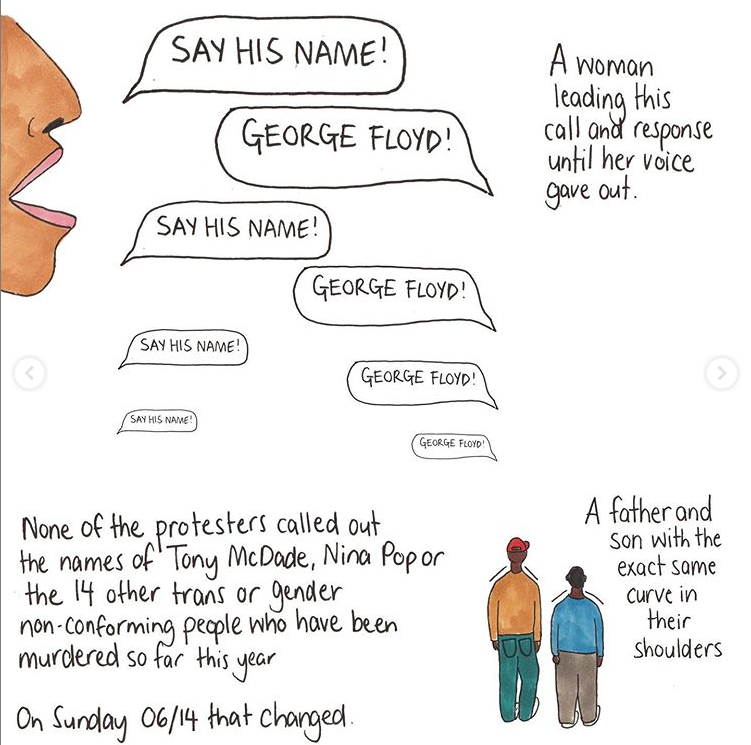 SAY HIS NAME!
GEORGE FLOYD!
SAY HIS NAME!
GEORGE FLOYD!
SAY HIS NAME!
GEORGE FLOYD!
SAY HIS NAME!
GEORGE FLOYD!
A woman
leading this
call and response
until her voice
gave out.
None of the protesters called out
the names of Tony McDade, Nina Pop or
the 14 other trans or gender
non-conforming people who have been
murdered so far this year
On Sunday 06/14 that changed.
A father and
son with the
exact same
curve in
their
shoulders